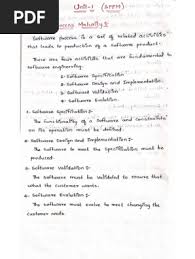 Unit-1 (SPPM)
Process Maturity :
Software process is a set of related activities
that leads to production of a software product.
There are four activities that are fundamental to
software engineering.
1- Software Specification
2- Software Design and Implementation
3- Software Validation
4- Software Evolution.
1- Software Specification :-
The functionality of a Software and constraints
on its operation must be defined.
2- Software Design and Implementation :-
The Software to meet the Specification must be
produced.
3- Software Validation :-
Software must be Validated to ensure that
what the customer wants.
4- Software Evolution :-
The Software must evolve to meet changing the
Customer needs.